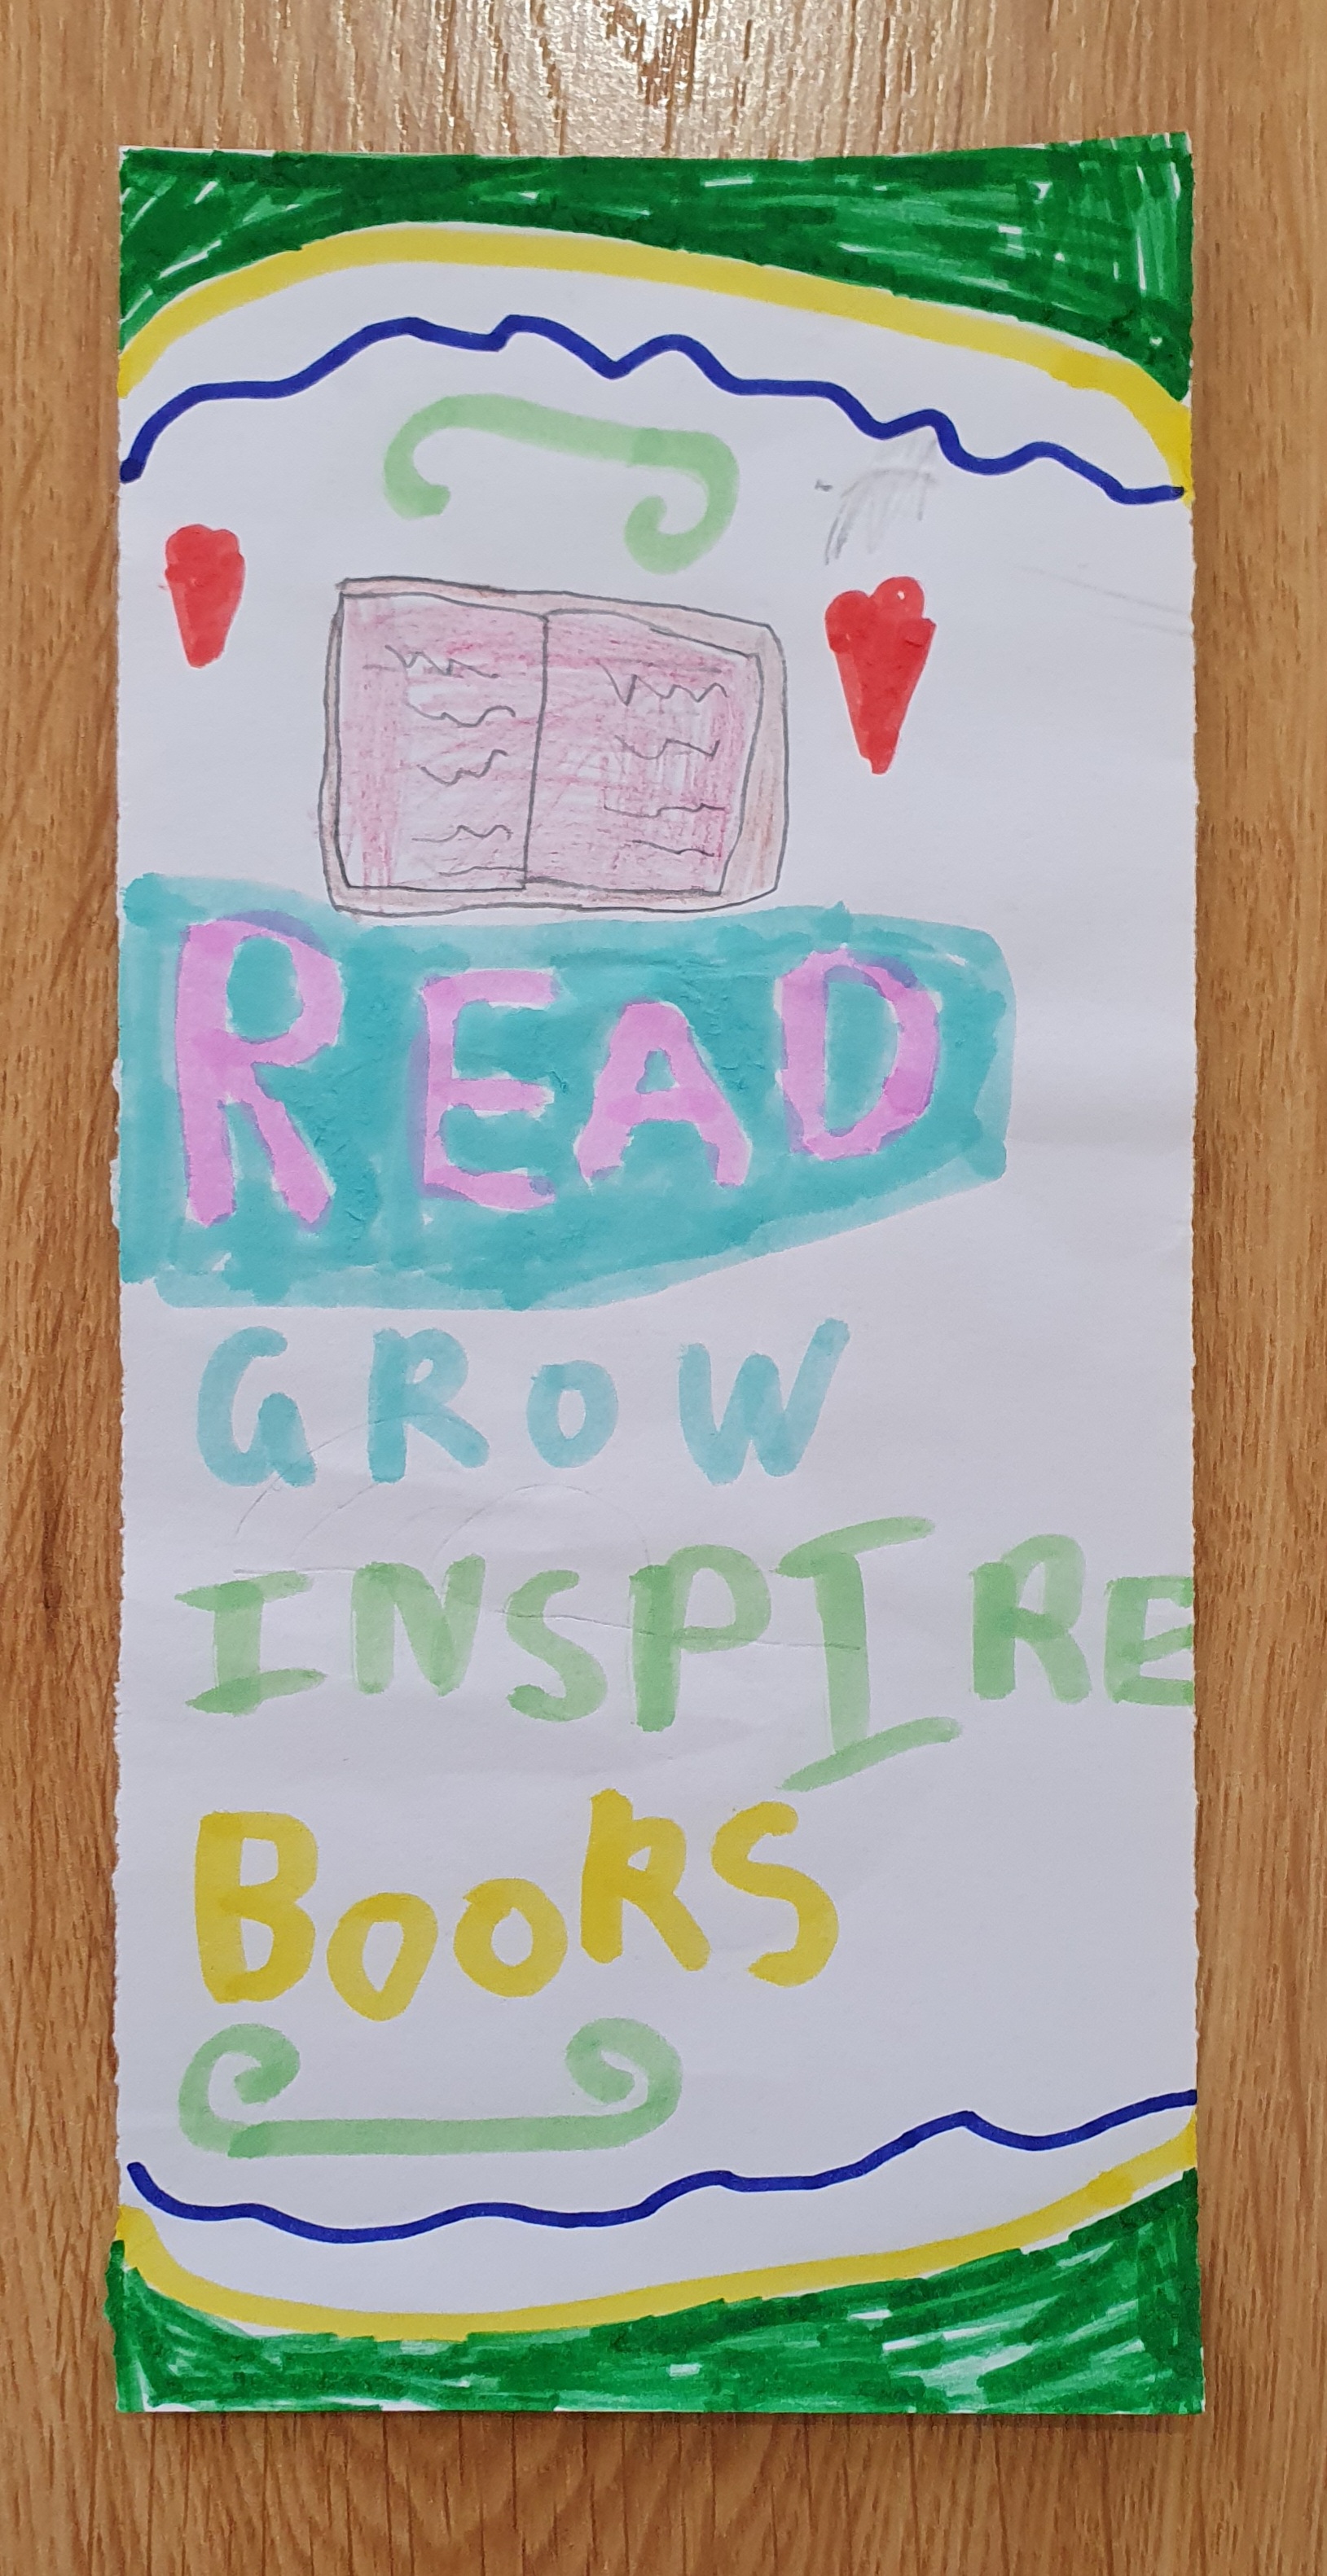 READ
GROW
INSPIRE
BOOKS